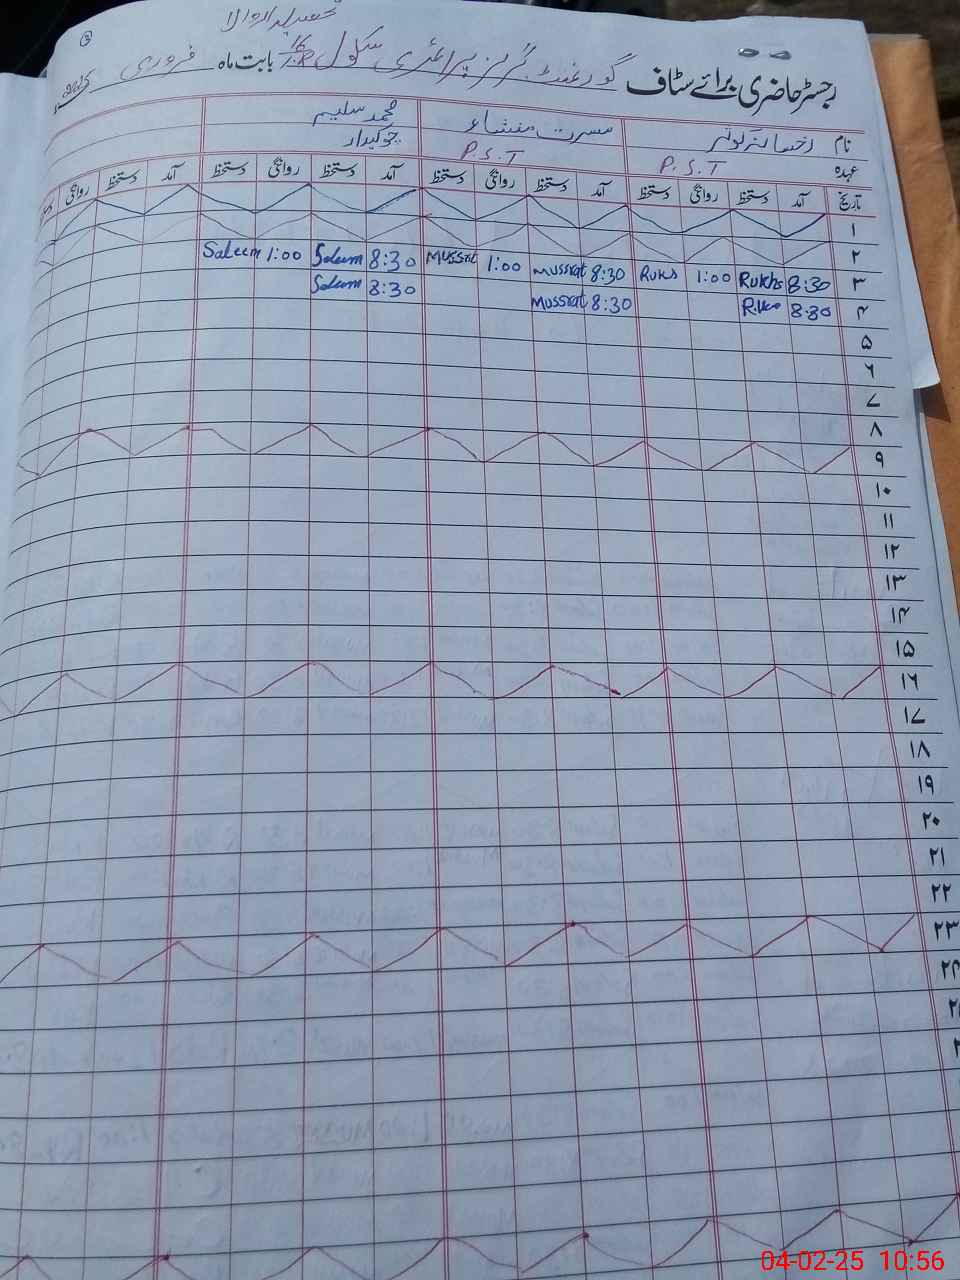 رجسٹر حاضری برائے سٹاف گورنمنٹ گرلز پرائمری سکول بابت ماہ فروری
نام رخسانہ کوثر مسرت منشاء محمد سلیم
عہدہ P.S.T P.S.T چوکیدار
تاریخ آمد دستخط روانگی دستخط آمد دستخط روانگی دستخط آمد دستخط روانگی دستخط آمد دستخط روانگی
۱
۲
۳ 8:30 Rukhs 1:00 Ruks 8:30 Mussrat 1:00 Mussrat 8:30 Saleem 1:00 Saleem
۴ 8:30 8:30 Mussrat 8:30 Saleem
۵
۶
۷
۸
۹
۱۰
۱۱
۱۲
۱۳
۱۴
۱۵
۱۶
۱۷
۱۸
۱۹
۲۰
۲۱
۲۲
۲۳
۲۴
04-02-25 10:56